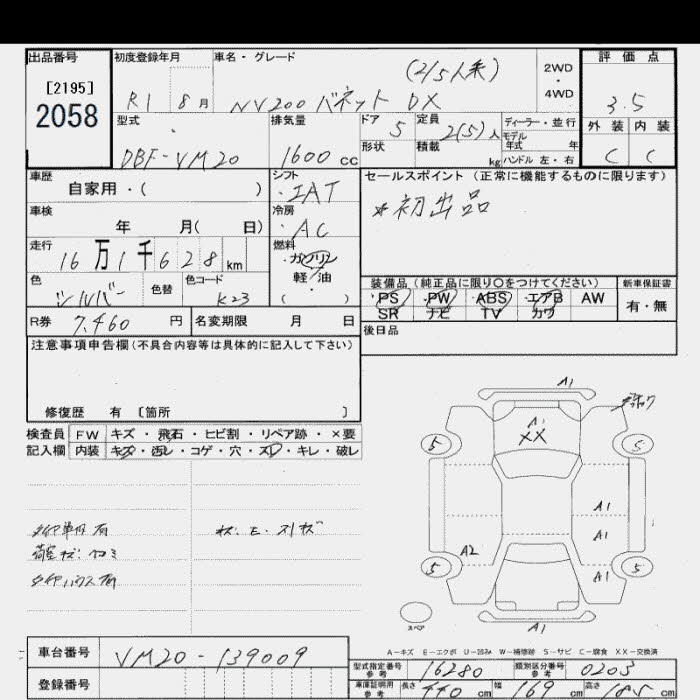 出品番号
[2195]
2058
初度登録年月
R1 8月
車名・グレード
(2/5人乗)
NV200 バネット DX
2WD
・
4WD
評価点
3.5
外装 内装
C C
型式
DBF-VM20
排気量
1600cc
ドア 5
定員 2(5)人
形状
積載 kg
ディーラー・並行
モデル
年式 年
ハンドル 左・右
車歴
自家用・( )
シフト
IAT
セールスポイント (正常に機能するものに限ります)
*初出品
車検
年 月( 日)
冷房
AC
走行
16万1千628km
燃料
ガソリン
軽・油
( )
色
シルバー
色替
色コード
K23
装備品 (純正品に限り○をつけてください)
新車保証書
PS PW ABS エアB AW
SR ナビ TV カワ
有・無
R券 7,460円
名変期限 月 日
後日品
注意事項申告欄(不具合内容等は具体的に記入して下さい)
修復歴 有 〔箇所 〕
検査員
記入欄
FW キズ・飛石・ヒビ割・リペア跡・×要
内装 キズ・汚レ・コゲ・穴・スレ・キレ・破レ
タイヤ単用有
荷室キズ・凹ミ
タイヤハウス有
キズ・E・スリキズ
A1
A1
XX
5
5
A1
A1
A2
5
5
A1
スペア
A1
A-キズ E-エクボ U-凹み W-補修跡 S-サビ C-腐食 XX-交換済
車台番号 VM20-139009
登録番号
型式指定番号
参考
16280
類別区分番号
参考
0203
車庫証明用
参考
長さ 440cm 幅 169cm 高さ 185cm